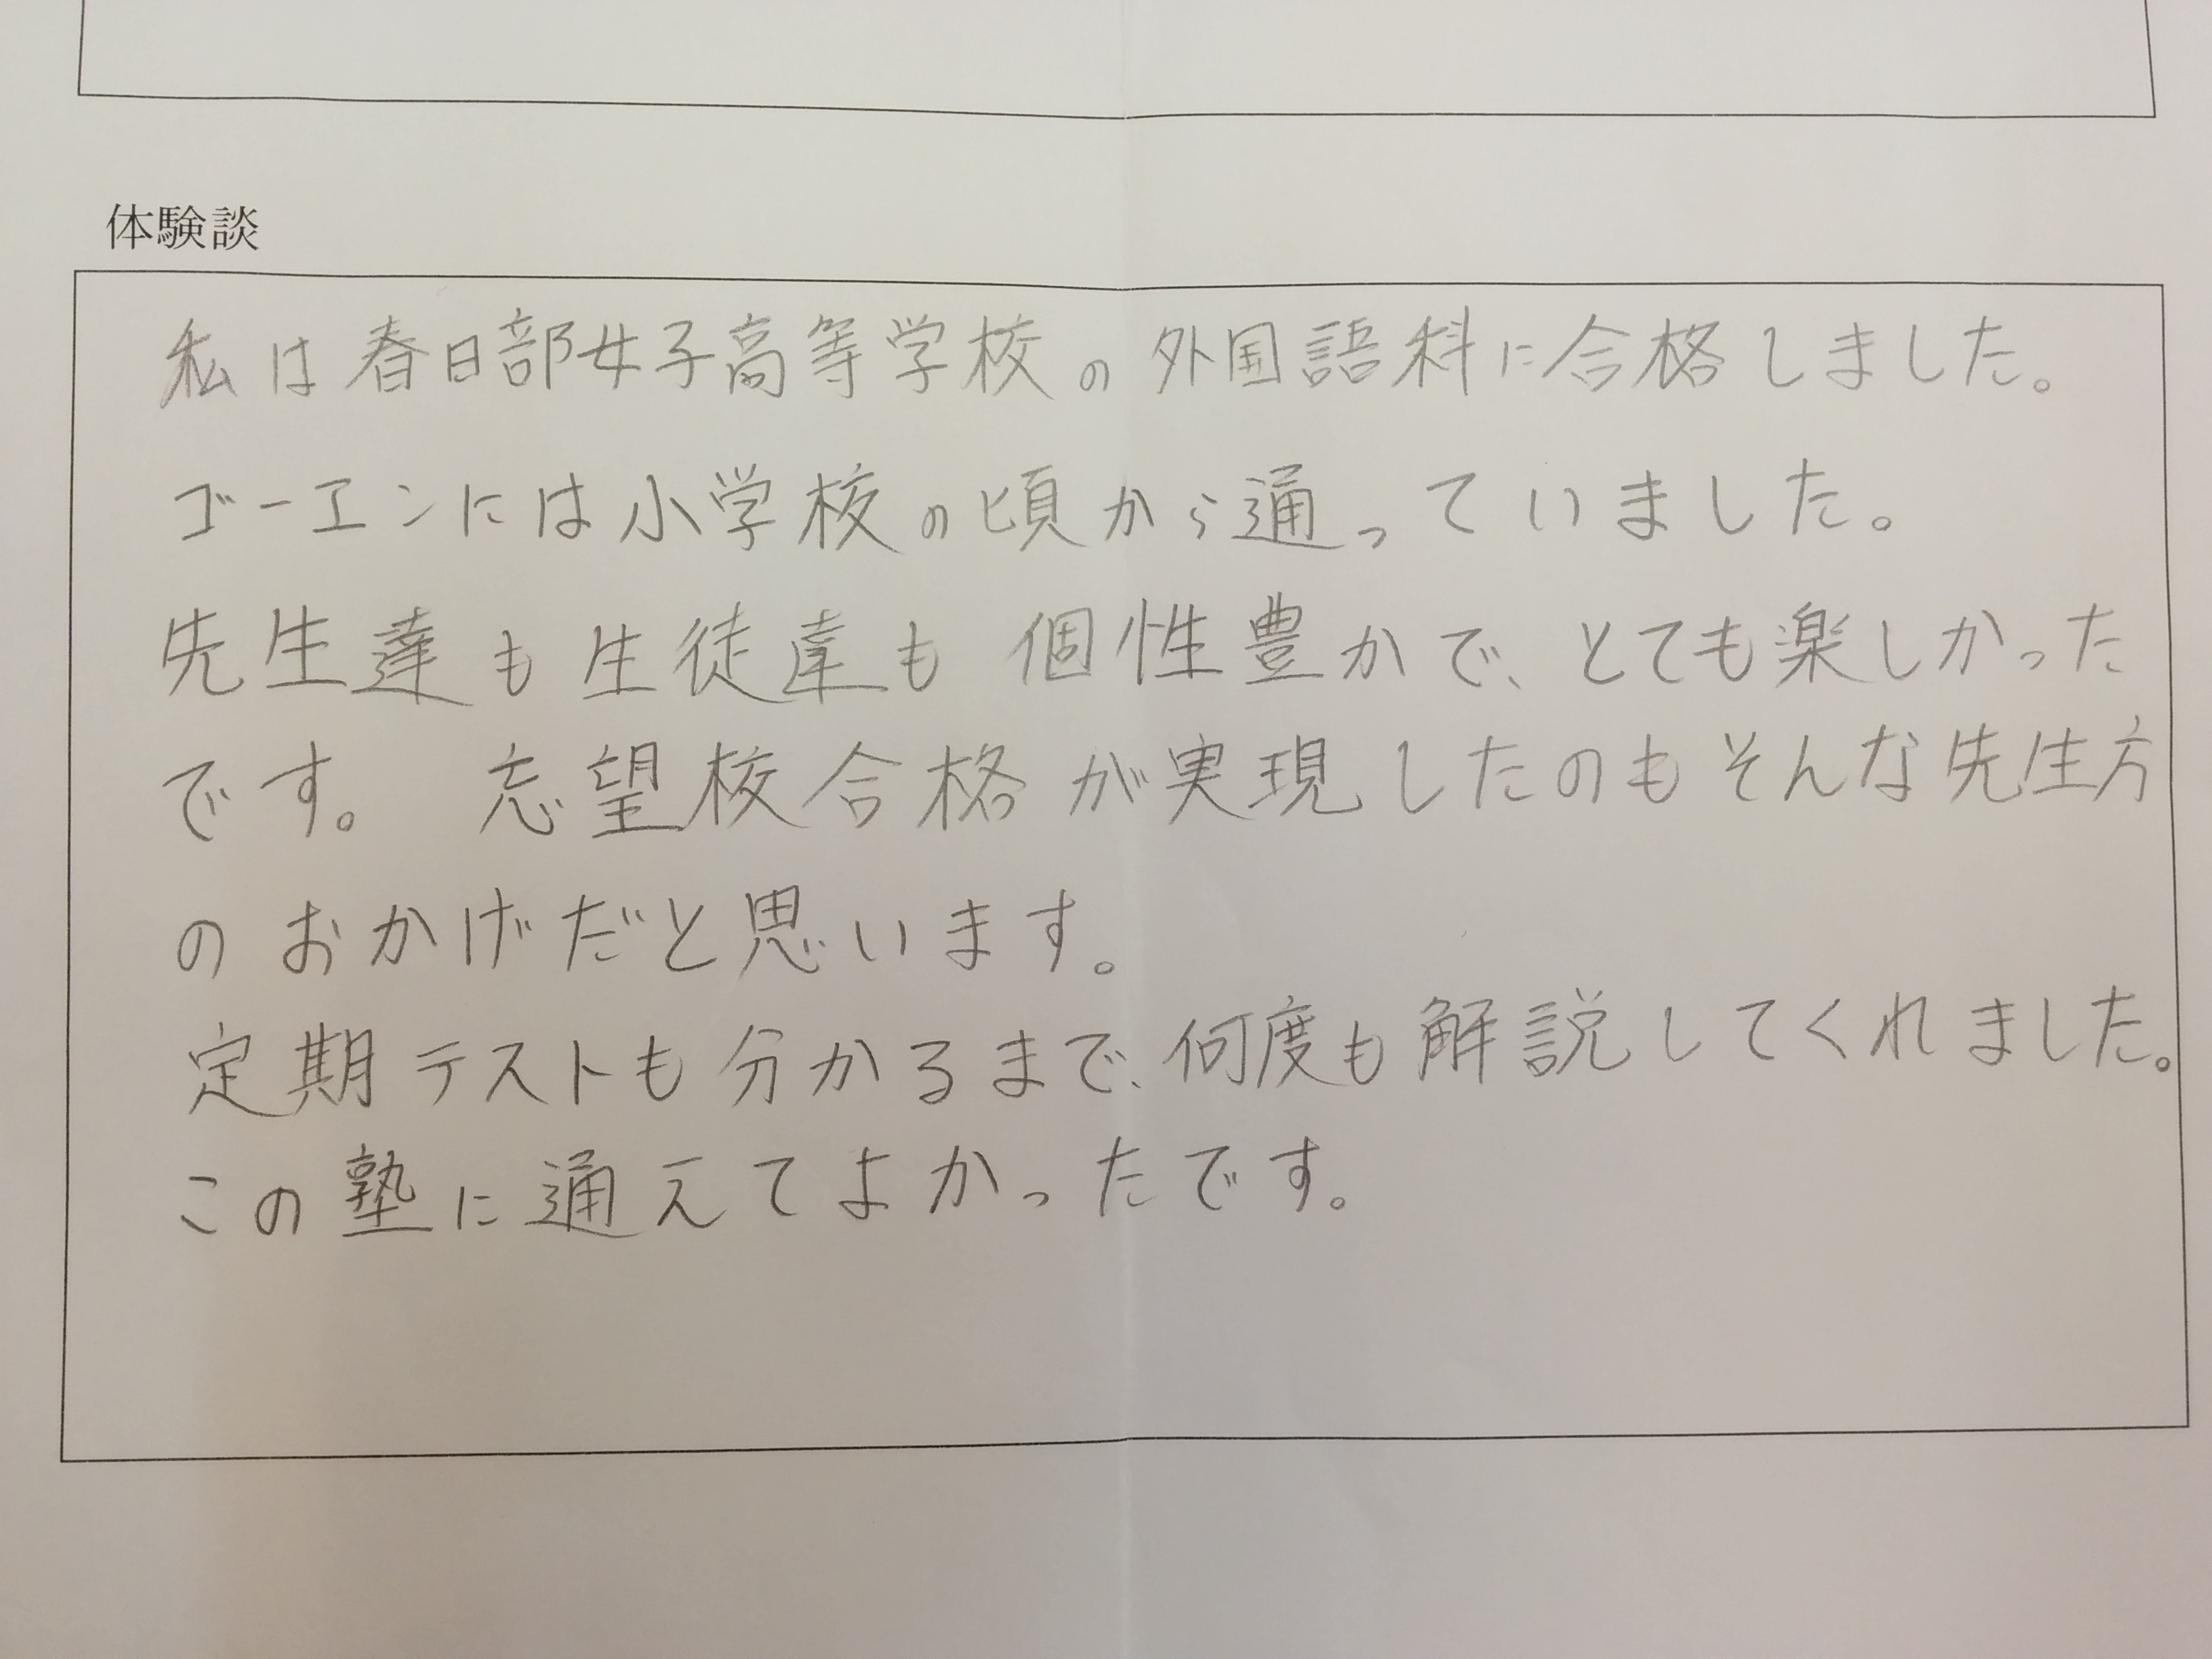 体験談
私は春日部女子高等学校の外国語科に合格しました。
ゴーエンには小学校の頃から通っていました。
先生達も生徒達も個性豊かで、とても楽しかった
です。 志望校合格が実現したのもそんな先生方
のおかげだと思います。
定期テストも分かるまで、何度も解説してくれました。
この塾に通えてよかったです。